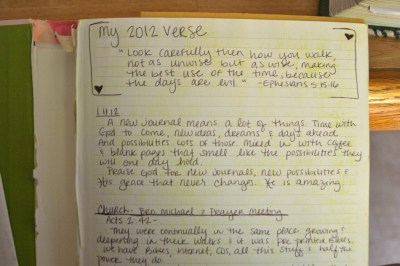 My 2012 VERSE
"Look carefully then how you walk
not as unwise but as wise, making
the best use of the time, because
the days are evil." -Ephesians 5:15-16
1.1.12
A new journal means a lot of things. Time with
God to come, new ideas, dreams & days ahead.
And possibilities lots of those. Mixed in with coffee
& blank pages that smell like the possibilities they
will one day hold.
Praise God for new journals, new possibilities &
His grace that never changes. He is amazing.
Church- Ben, Michael & Prayer Meeting
Acts 2:42-
They were continually in the same place- growing &
deepening in their walks & it was pre-printed Bibles.
We have Bibles, internet, CDs, all this stuff & half the
power they do.